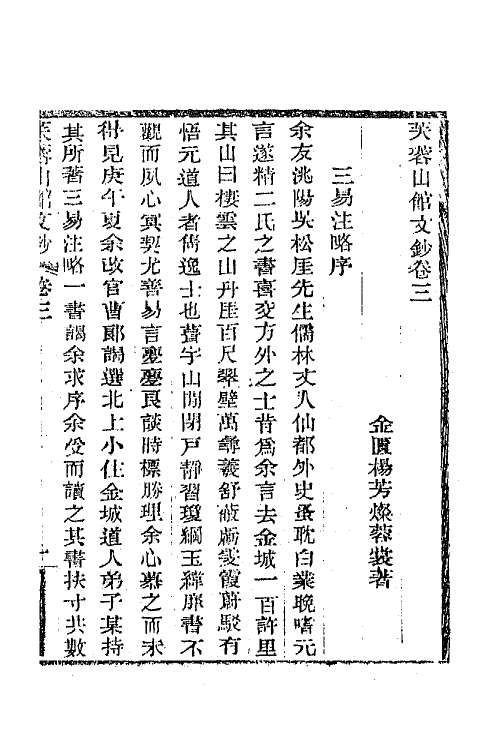 芙蓉山館文鈔卷三
金匱楊芳燦蓉裳著
三易注略序
余友洮陽吳松厓先生儒林丈人仙都外史蚤耽白業晚嗜元
言遂精二氏之書喜交方外之士昔為余言去金城一百許里
其山曰棲雲之山丹厓百尺翠壁萬尋羲舒蔽虧雯霞蔚駮有
悟元道人者儁逸士也葺宇山閒閉戸靜習瓊綱玉緯靡書不
觀而夙心冥契尤善易言亹亹艮談時標勝理余心慕之而未
得見庚午夏余改官曹郞謁選北上小住金城道人弟子某持
其所著三易注略一書謁余求序余受而讀之其書扶寸共數
芙蓉山館文鈔 卷三 一